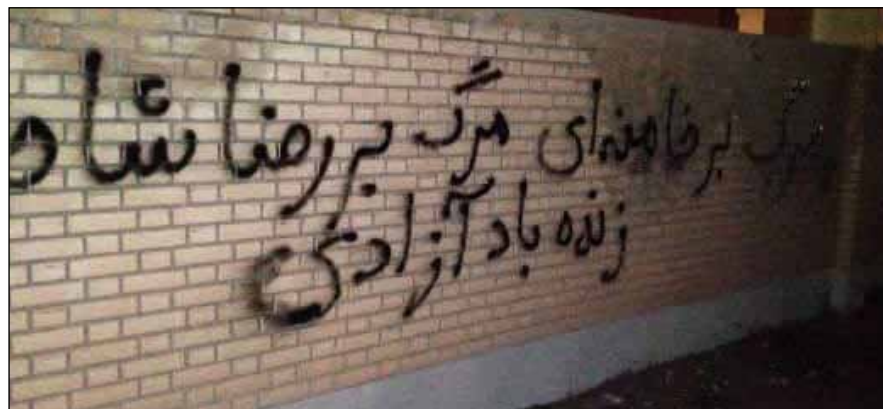 مرگ بر خامنه‌ای مرگ بر رضا شاه
زنده باد آزادی